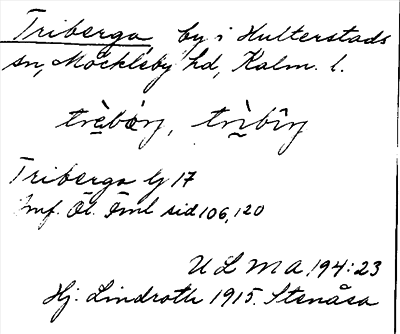 Triberga by i Hulterstads
sn, Möckleby hd, Kalm. l.
trèbèrj, trìbîrj
Triberga G 17
Jmf. Öl. Önl sid 106, 120
U L M A, 194:23
Hj. Lindroth 1915. Stenåsa